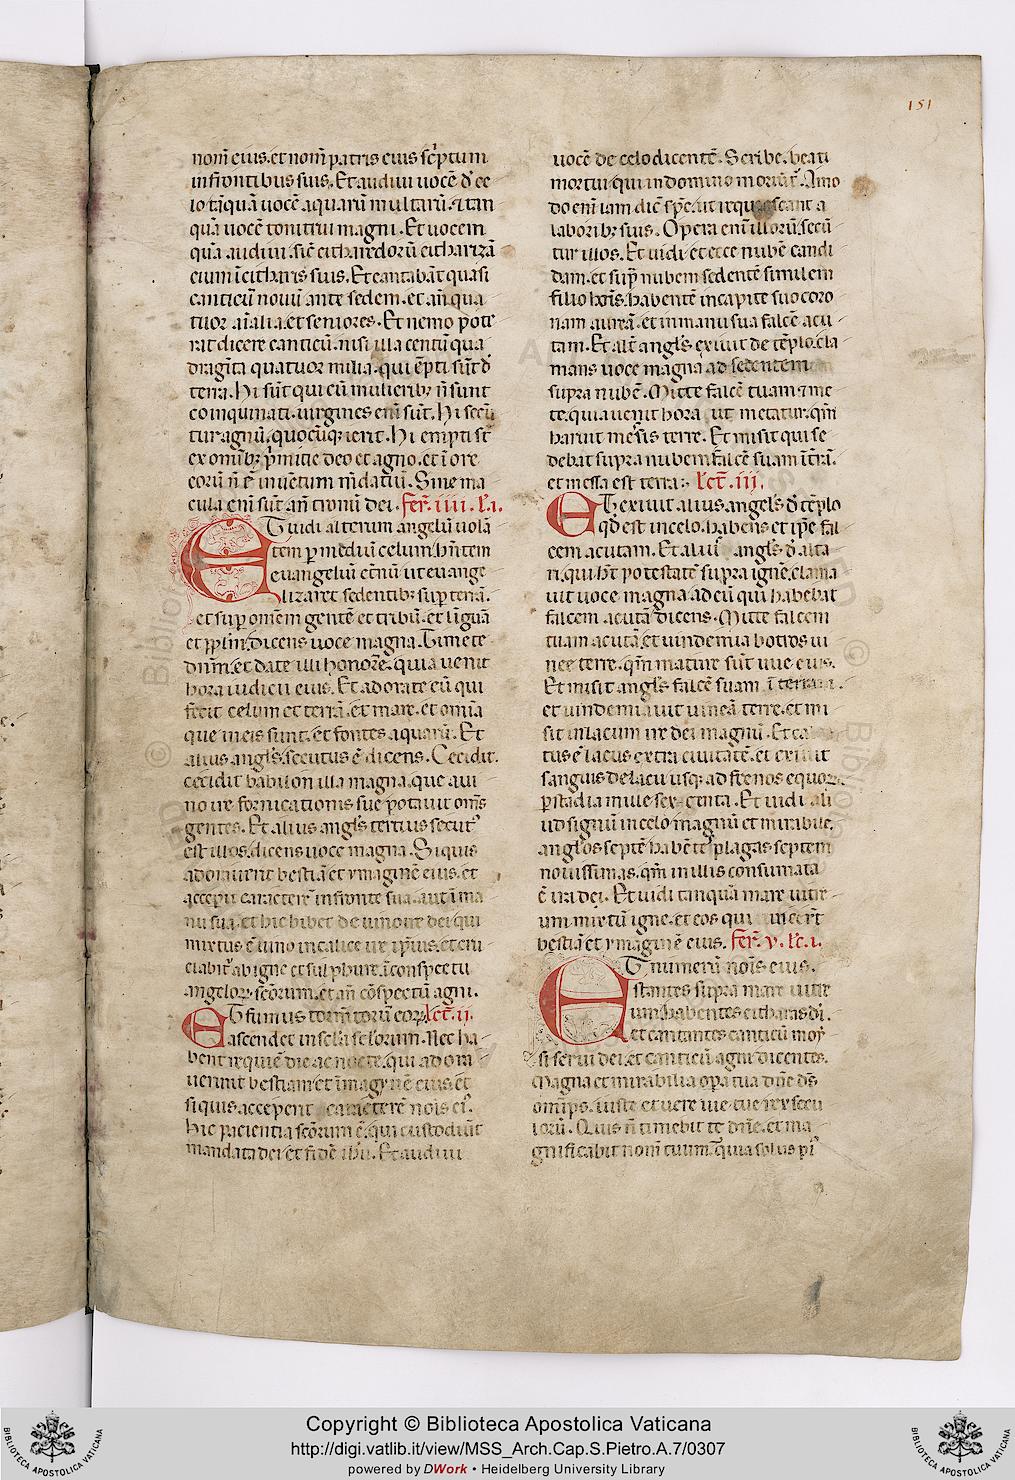 151
nom̄ eius. et nom̄ patris eius sc̄ptum
in frontibus suis. Et audiui uocē de ce
lo tāquā uocē aquarū multarū. ⁊ tan
quā uocem tonitrui magni. Et uocem
quā audiui. sic̄ citharedorū citharizā
cium ī citharis suis. Et cantabāt quasi
canticū nouū ante sedem. et an̄ qua
tuor aīalia. et seniores. Et nemo pote
rat dicere canticū. nisi illa centū qua
dragīta quatuor milia. qui ēpti sūt de
terra. Hi sūt qui cū mulierib; n̄ sunt
coinquinati. uirgines enī sūt. Hi secū
tur agnū. quocūq; ierit. Hi empti st̄
ex omīb; p̄mitie deo et agno. et ī ore
eorū n̄ ē inuētum mēdatiū. Sine ma
cula enī sūt an̄ tronū dei. fer̄. iiii. l̄. i.
ET uidi alterum angelū uolā
tem per mediū celum. hn̄tem
euangeliū et̄nū ut euange
lizaret sedentib; sup̄ terrā.
et sup̄ omēm gentē et tribū. et līguā
et pp̄lm̄. dicens uoce magna. Timete
dn̄m. et date illi honorē. quia uenit
hora iudicii eius. Et adorate eū qui
fecit celum et terrā. et mare. et omīa
que in eis sunt. et fontes aquarū. Et
alius angl̄s. secutus ē dicens. Cecidit.
cecidit babilon illa magna. que a ui
no ire fornicationis sue potauit om̄s
gentes. Et alius angl̄s tertius secut᾽
est illos. dicens uoce magna. Si quis
adorauerit bestiā et ymaginē eius. et
acceperit caracterē in fronte sua. aut ī ma
nu sua. et hic bibet de uino ire dei qui
mixtus ē uino in calice ire ip̄ius. et cru
ciabit᾽ ab igne et sulphure. ī conspectu
angelor̨. scōrum. et an̄ cōspectū agni.
ET fumus tormt̄torū eor̨. lec̄t. ii.
ascendet in sel̄a sel̄orum. Nec ha
bent requiē die ac nocte. qui adora
uerunt bestiam et īmagynē eius. et
si quis acceperit caracterē nois ei᾽.
hic pacientia scōrum ē. qui custodiūt
mandata dei et fidē ih̄u. Et audiui
uocē de celo dicentē. Scribe. beati
mortui qui in domino moriūt᾽. Amo
do enī iam dic̄ sp̄c. ut requiescant a
laborib; suis. Opera enī illorū. secū
tur illos. Et uidi et ecce nubē candi
dam. et sup̄ nubem sedentē similem
filio hōis. habentē in capite suo coro
nam aureā. et in manu sua falcē acu
tam. Et alt̄ angl̄s exiuit de tēplo. cla
mans uoce magna ad sedentem
supra nubē. Mitte falcē tuam ⁊ me
te. quia uenit hora ut metatur. qm̄
haruit messis terre. Et misit qui se
debat supra nubem. falcē suam ī t̄rā.
et messa est terra. lec̄t. iii.
ET exiuit alius angel̄s de tēplo
qd̄ est in celo. habens et ip̄e fal
cem acutam. Et aliu᾽ angl̄s de alta
ri. qui hēt potestatē supra ignē. clama
uit uoce magna ad eū qui habebat
falcem acutā dicens. Mitte falcem
tuam acutā. et uindemia botros ui
nee terre. qm̄ mature sūt uue eius.
Et misit angl̄s falcē suam ī terram.
et uindemiauit uineā terre. et mi
sit in lacum ire dei magnū. Et calca
tus ē lacus extra ciuitatē. et exiuit
sanguis de lacu usq; ad frenos equor̨
p̄ stadia mille sexcenta. Et uidi ali
ud signū in celo magnū et mirabile.
anglōs septē habētes plagas septem
nouissimas. qm̄ in illis consumata
ē ira dei. Et uidi tanquā mare uitre
um mixtū igne. et eos qui uicerūt
bestiā et ymaginē eius. fer̄. v. lec̄. i.
ET numerū nois eius.
stantes supra mare uitre
um. habentes citharas dī.
et cantantes canticū moy
si serui dei. et canticū agni dicentes.
Magna et mirabilia opa tua dn̄e ds̄
omīps. iuste et uere uie tue rex secu
lorū. Quis n̄ timebit te dn̄e. et ma
gnificabit nom̄ tuum. quia solus pi᾽
Copyright © Biblioteca Apostolica Vaticana
http://digi.vatlib.it/view/MSS_Arch.Cap.S.Pietro.A.7/0307
powered by DWork • Heidelberg University Library
BIBLIOTECA APOSTOLICA VATICANA
BIBLIOTECA APOSTOLICA VATICANA